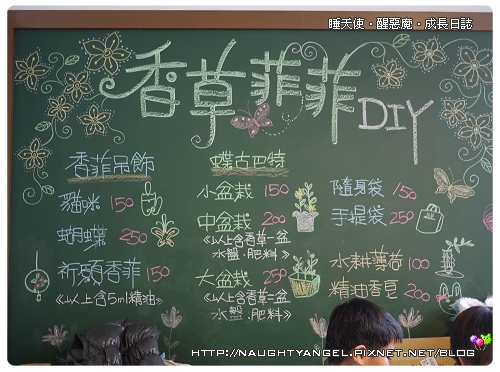 睡天使‧醒惡魔‧成長日誌
香草菲菲DIY
香菲吊飾
貓咪 150
蝴蝶 250
祈願香菲 150
《以上含5ml精油》
蝶古巴特
小盆栽 150
中盆栽 200
《以上含香草一盆
水盤‧肥料》
大盆栽 250
《以上含香草三盆
水盤‧肥料》
隨身袋 150
手提袋 250
水耕薄荷 100
精油香皂 200
HTTP://NAUGHTYANGEL.PIXNET.NET/BLOG